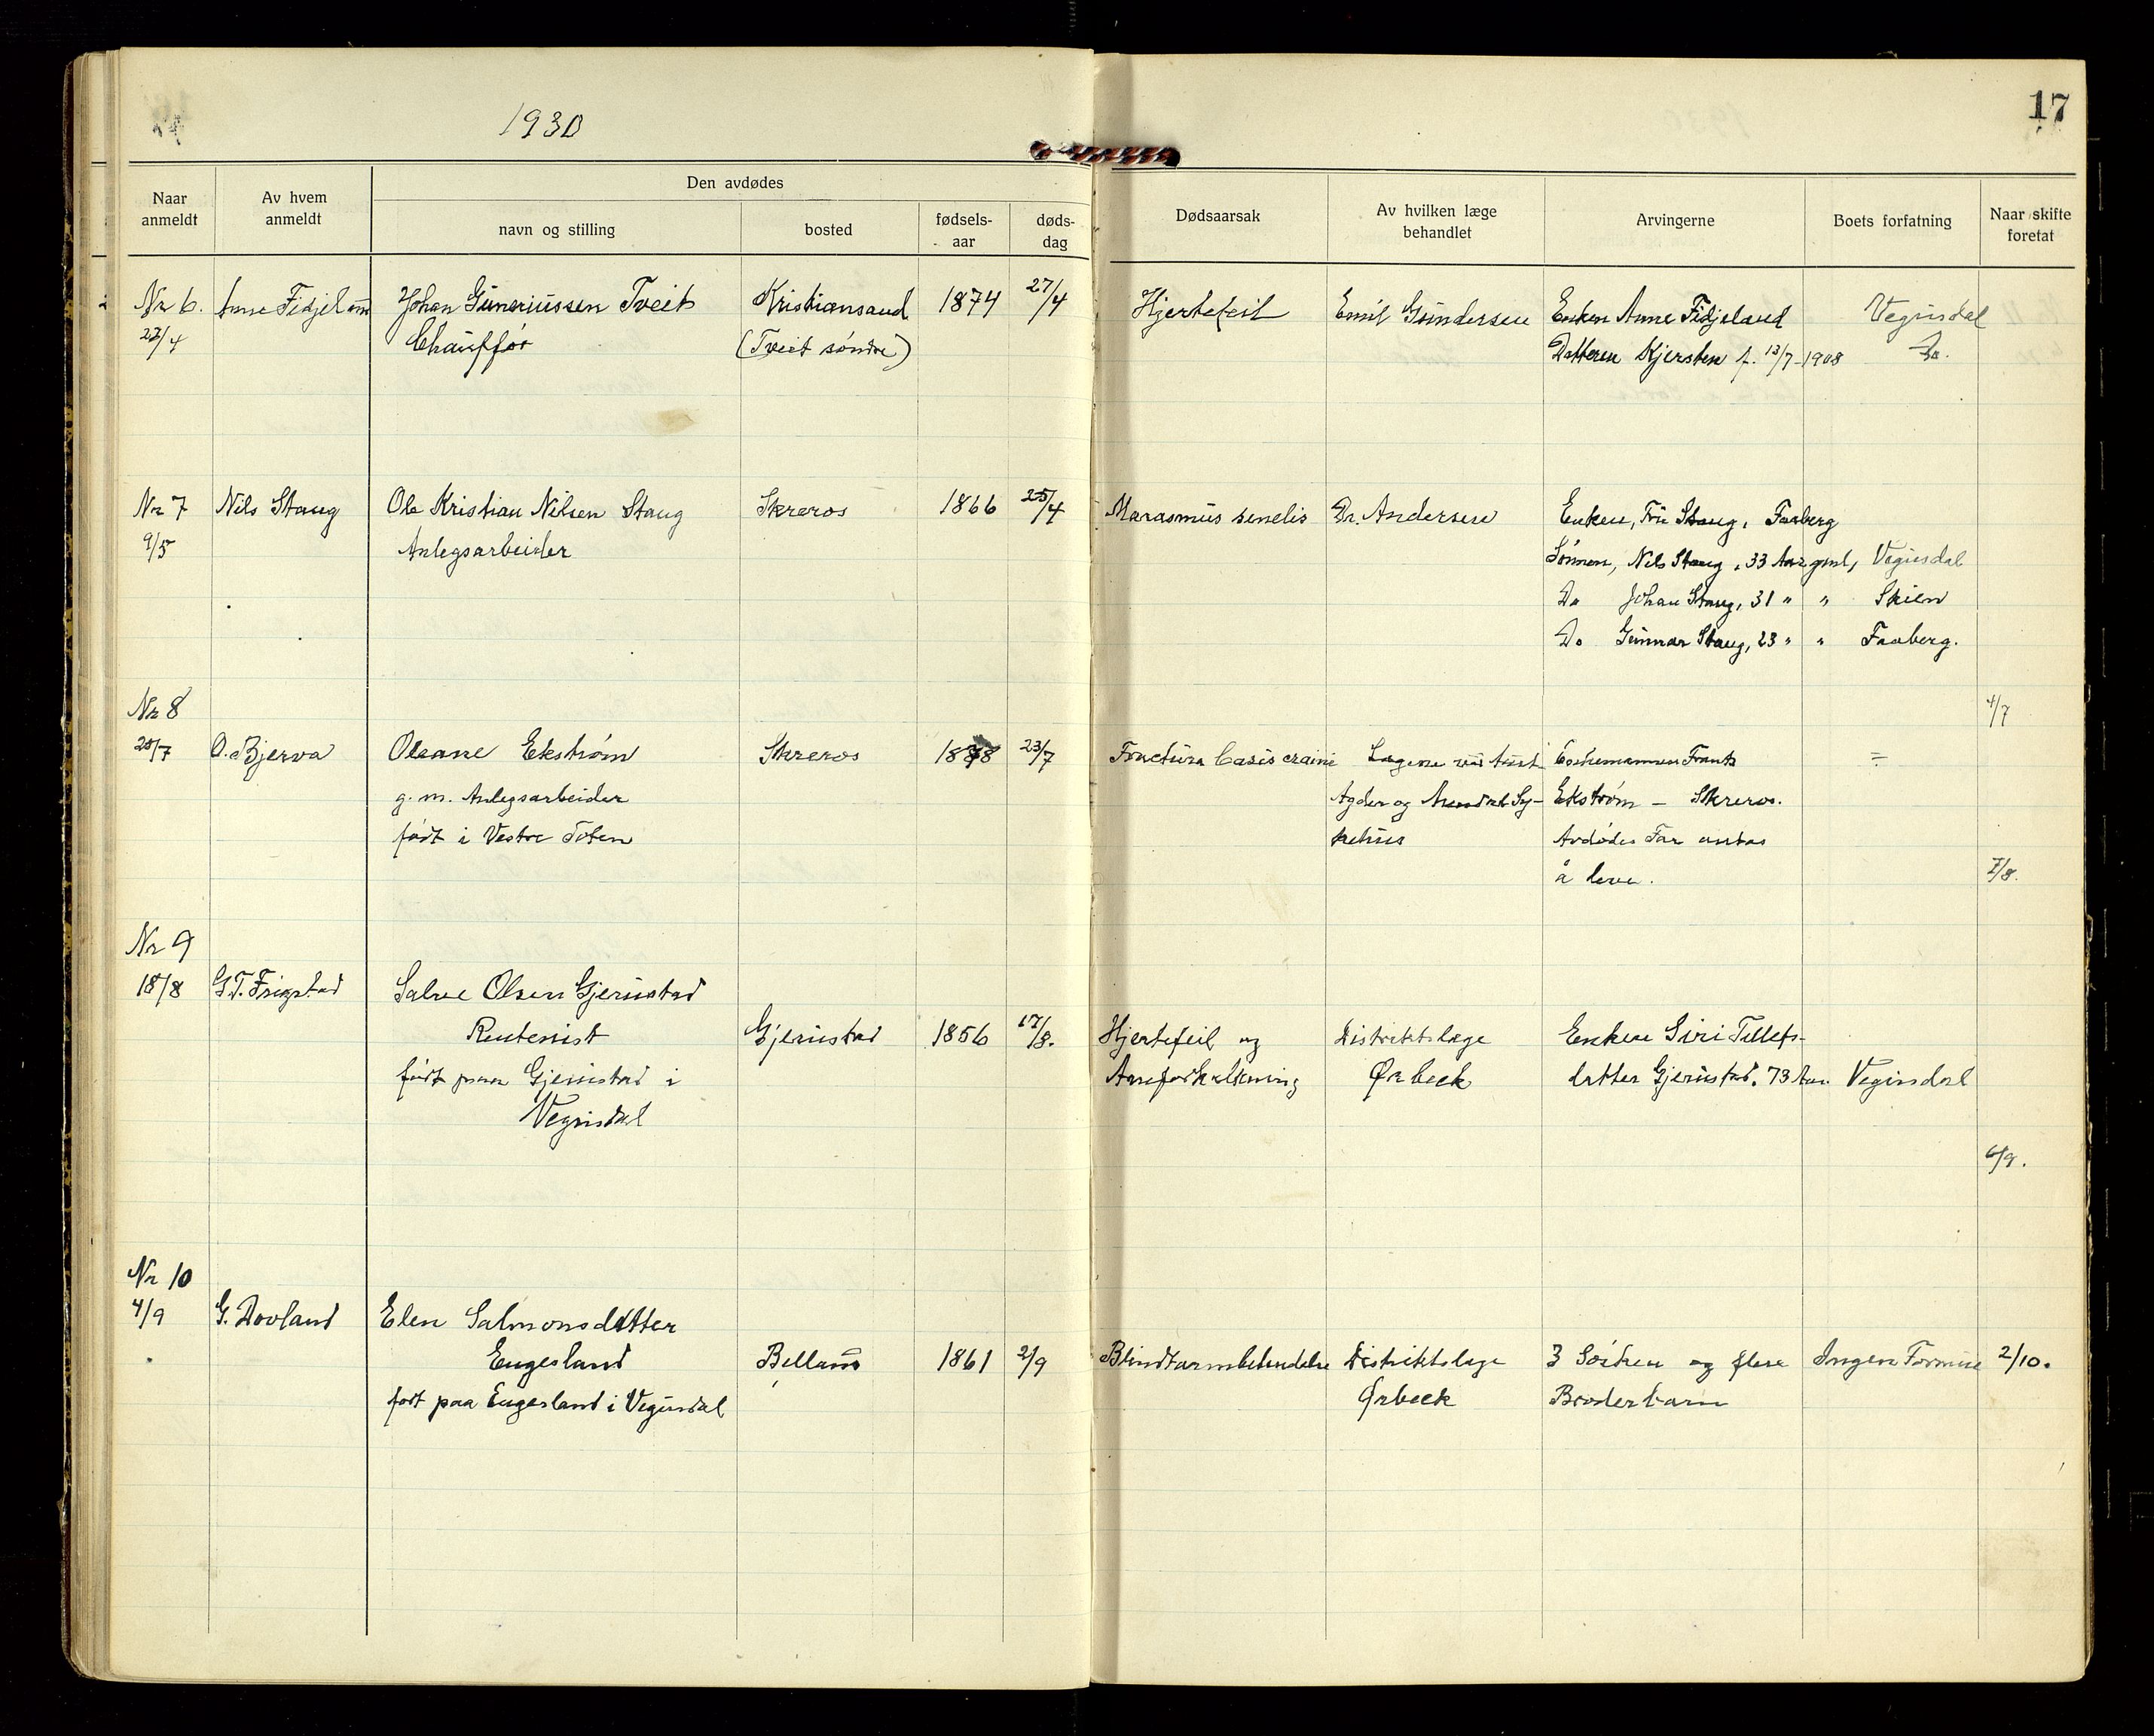 1930
17
Naar anmeldt
Av hvem anmeldt
Den avdødes
navn og stilling
bosted
fødsels-aar
døds-dag
Dødsaarsak
Av hvilken læge behandlet
Arvingerne
Boets forfatning
Naar skifte foretat
Nr 6. Anne Fidjeland Johan Guneriussen Tveit Kristiansand 1874 27/4 Hjertefeil Emil Gundersen Enken Anne Fidjeland Vegusdal
/4 Chauffør (Tveit søndre) Datteren Kjersten f. 13/7-1908 Do.
Nr 7 Nils Staug Ole Kristian Nilsen Staug Skreros 1866 25/4 Marasmus senelis Dr. Andersen Enken, Fru Staug, Faaberg
9/5 Anlegsarbeider Sønnen, Nils Staug, 33 Aar gml, Vegusdal
Do Johan Staug, 31 " " Skien
Do Gunnar Staug, 23 " " Faaberg.
Nr 8 4/7
/7 O. Bjerva Oleane Ekstrøm Skreros 23/7 Fractura basis cranii Lægene ved Aust Ektemannen Frants =
g. m. Anlegsarbeider Agder og Arendal Sy- Ekstrøm - Skreros.
født i Vestre Toten kehus Avdødes Far antas
å leve. 7/8.
Nr 9
18/8 G.T. Frigstad Salve Olsen Gjerustad
Rentenist Gjerustad 1856 17/8. Hjertefeil og Distriktslæge Enken Siri Tellefs-
født paa Gjerustad i Aareforkalkning Ørbeck datter Gjerustad. 73 Aar. Vegusdal
Vegusdal
6/9.
Nr 10
4/9 G. Dovland Elen Salmonsdatter
Engesland Belland 1861 2/9 Blindtarmbetendelse Distriktslæge 3 Søstren og flere Ingen Formue 2/10.
født paa Engesland i Vegusdal Ørbeck Broderbarn